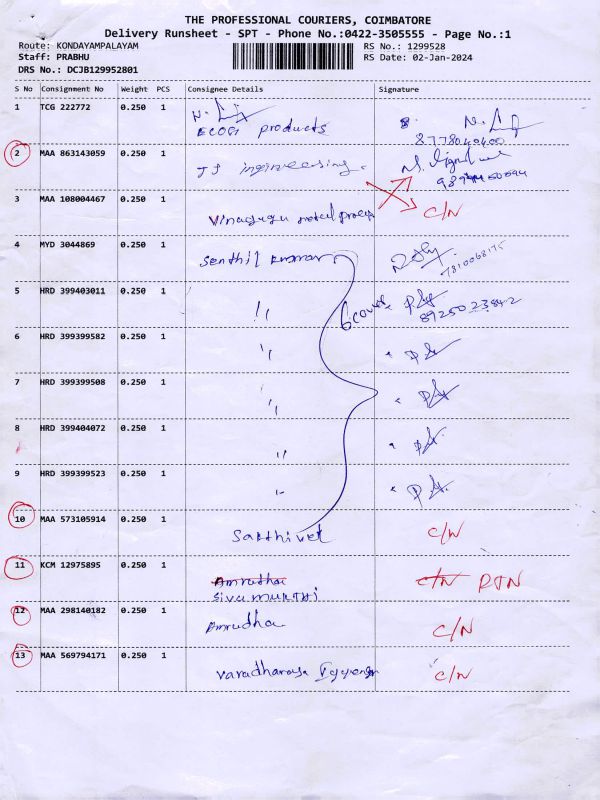 THE PROFESSIONAL COURIERS, COIMBATORE
Delivery Runsheet - SPT - Phone No.:0422-3505555 - Page No.:1
Route: KONDAYAMPALAYAM
RS No.: 1299528
Staff: PRABHU
RS Date: 02-Jan-2024
DRS No.: DCJB129952801
S No Consignment No Weight PCS Consignee Details Signature
1 TCG 222772 0.250 1
ECOGI products
8778040400
2 MAA 863143059 0.250 1 JJ
3 MAA 108004467 0.250 1 C/N
4 MYD 3044869 0.250 1 Senthil kumar
7810068175
5 HRD 399403011 0.250 1 "
8925023842
6 HRD 399399582 0.250 1 "
7 HRD 399399508 0.250 1 "
8 HRD 399404072 0.250 1 "
9 HRD 399399523 0.250 1 "
10 MAA 573105914 0.250 1 Sakthivel C/N
11 KCM 12975895 0.250 1 Amrudha C/N RTN
Siva MURTHI
12 MAA 298140182 0.250 1 Amrudha C/N
13 MAA 569794171 0.250 1 Varadharaja C/N